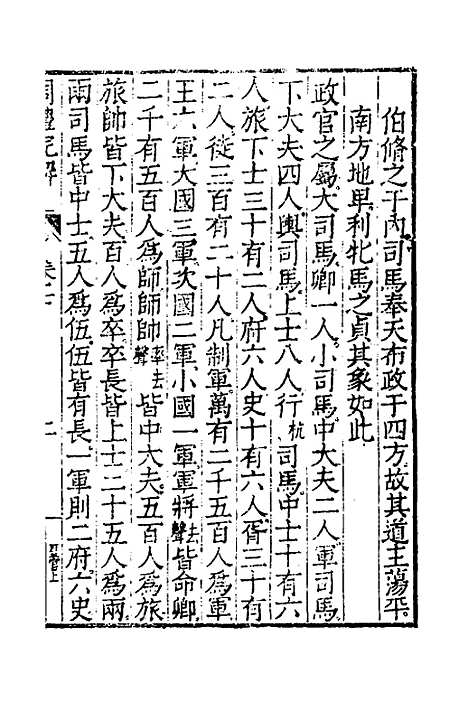 伯脩之于內司馬奉天布政于四方故其道主蕩平
南方地卑利牝馬之貞其象如此
政官之屬大司馬卿一人小司馬中大夫二人軍司馬
下大夫四人輿司馬上士八人行杭司馬中士十有六
人旅下士三十有二人府六人史十有六人胥三十有
二人徒三百有二十人凡制軍萬有二千五百人爲軍
王六軍大國三軍次國二軍小國一軍軍將去聲皆命卿
二千有五百人爲師師帥率去聲皆中大夫五百人爲旅
旅帥皆下大夫百人爲卒卒長皆上士二十五人爲兩
兩司馬皆中士五人爲伍伍皆有長一軍則二府六史
周禮完解 卷七 二